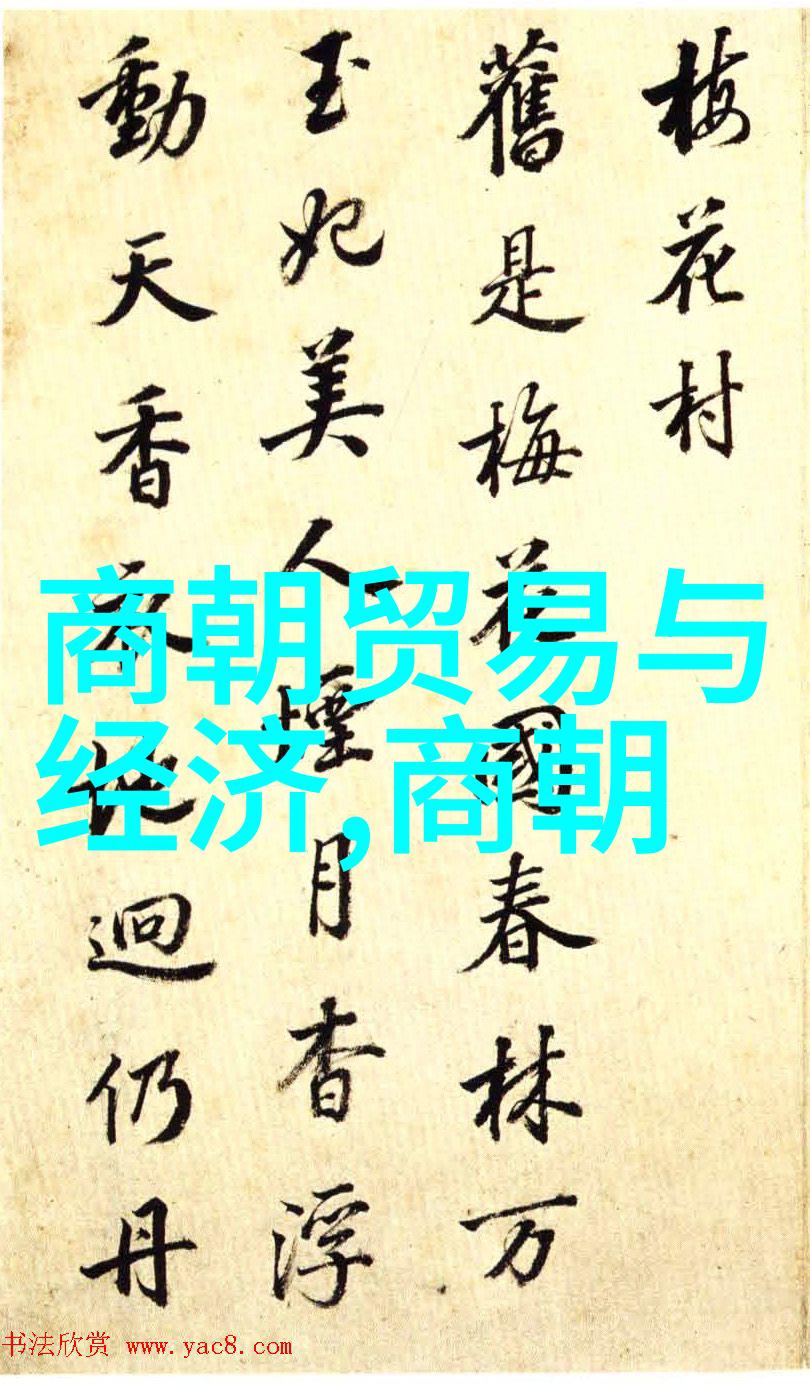 梅花村
舊是梅花國春林万
玉妃美人煙月杳浮
動天香地迴仍丹
商朝贸易与
经济,商朝
书法欣赏 www.yac8.com